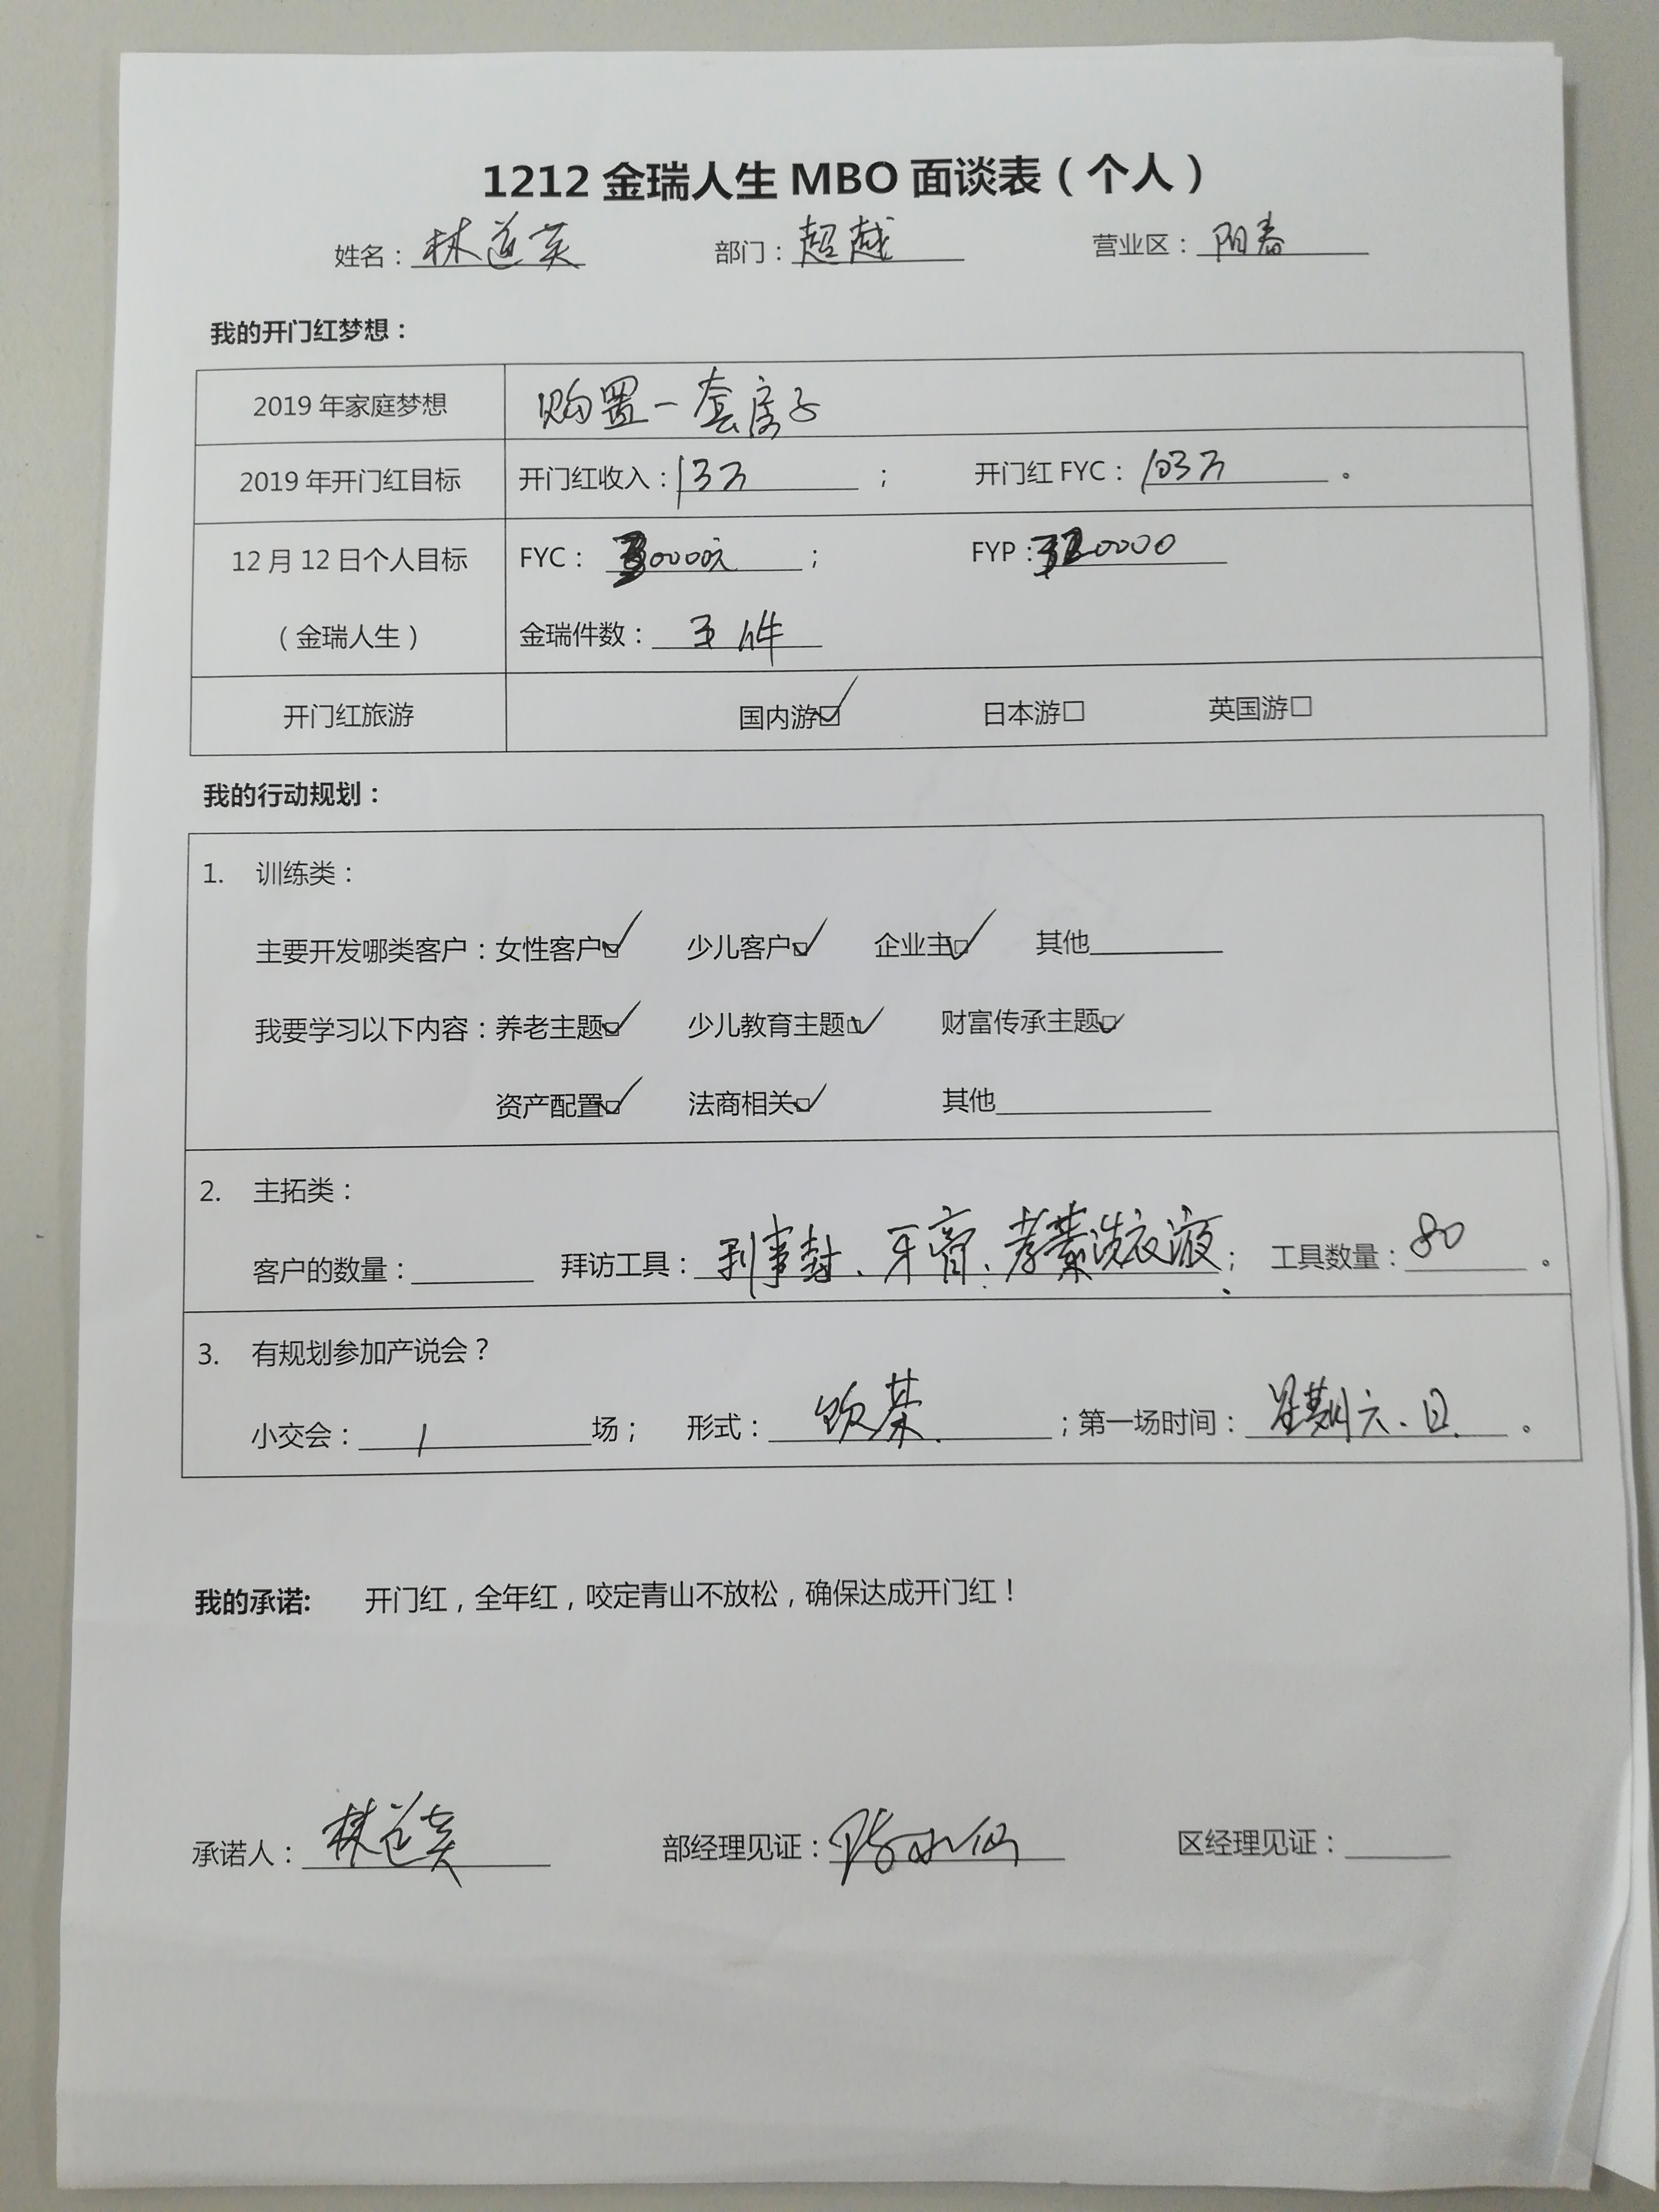 1212金瑞人生MBO面谈表（个人）
姓名：林道英 部门：超越 营业区：阳春
我的开门红梦想：
2019年家庭梦想 购置一套房子
2019年开门红目标 开门红收入：13万； 开门红FYC：103万。
12月12日个人目标 FYC：0000元； FYP：0000
（金瑞人生） 金瑞件数：五件
开门红旅游 国内游☑ 日本游□ 英国游□
我的行动规划：
1. 训练类：
主要开发哪类客户：女性客户☑ 少儿客户☑ 企业主☑ 其他
我要学习以下内容：养老主题☑ 少儿教育主题☑ 财富传承主题☑
资产配置☑ 法商相关☑ 其他
2. 主拓类：
客户的数量： 拜访工具：利事封、牙膏、洗衣液； 工具数量：80。
3. 有规划参加产说会？
小交会：1场； 形式：饮茶；第一场时间：星期六、日。
我的承诺: 开门红，全年红，咬定青山不放松，确保达成开门红！
承诺人：林道英 部经理见证：陈水仙 区经理见证：